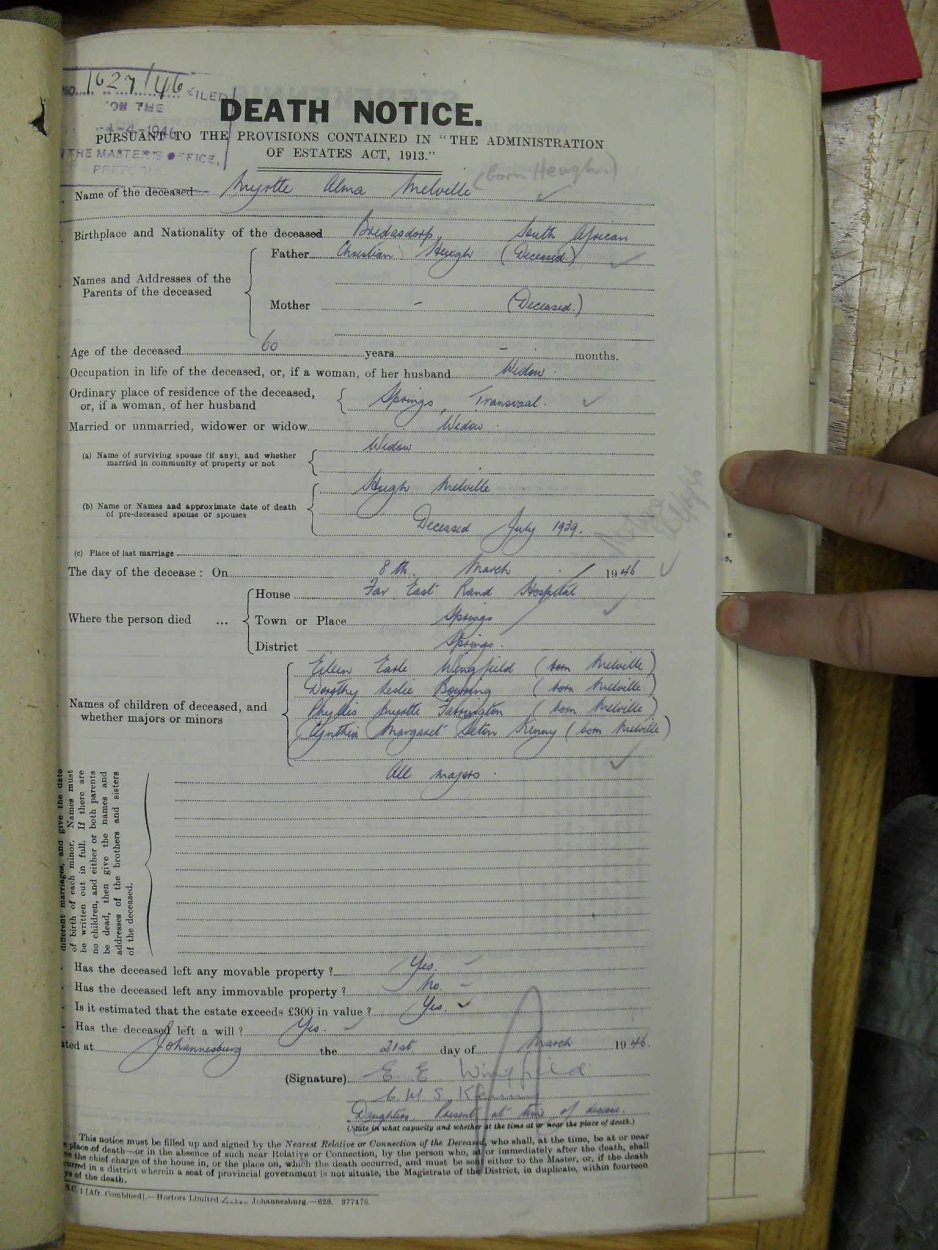 NO. 1627/46 FILED
ON THE
-4-1946
THE MASTER'S OFFICE,
DEATH NOTICE.
PURSUANT TO THE PROVISIONS CONTAINED IN "THE ADMINISTRATION
OF ESTATES ACT, 1913."
Name of the deceased Myrtle Alma Melville (born Heugh.)
Birthplace and Nationality of the deceased Bredasdorp, South African
Names and Addresses of the
Parents of the deceased
Father Christian Heugh (Deceased)
Mother - (Deceased.)
Age of the deceased 60 years - months.
Occupation in life of the deceased, or, if a woman, of her husband Widow.
Ordinary place of residence of the deceased,
or, if a woman, of her husband
Springs, Transvaal.
Married or unmarried, widower or widow Widow.
(a) Name of surviving spouse (if any), and whether
married in community of property or not
Widow
(b) Name or Names and approximate date of death
of pre-deceased spouse or spouses
Hugh Melville
Deceased July 1939.
(c) Place of last marriage
The day of the decease : On 8th March 1946
Where the person died ...
House Far East Rand Hospital
Town or Place Springs
District Springs.
Names of children of deceased, and
whether majors or minors
Eileen Earle Wingfield (born Melville)
Dorothy Leslie (born Melville)
Phyllis Myrtle (born Melville)
Cynthia Margaret Seton Kenny (born Melville)
All majors.
different marriages, and give the date
of birth of each minor. Names must
be written out in full. If there are
no children, and either or both parents
be dead, then give the names and
addresses of the brothers and sisters
of the deceased.
Has the deceased left any movable property ? Yes.
Has the deceased left any immovable property ? No.
Is it estimated that the estate exceeds £300 in value ? Yes.
Has the deceased left a will ? Yes.
ted at Johannesburg the 21st day of March 1946.
(Signature) E. E. Wingfield
C. M. S. Kenny
Daughters. Present at time of decease.
(State in what capacity and whether at the time at or near the place of death.)
This notice must be filled up and signed by the Nearest Relative or Connection of the Deceased, who shall, at the time, be at or near
place of death—or in the absence of such near Relative or Connection, by the person who, at or immediately after the death, shall
the chief charge of the house in, or the place on, which the death occurred, and must be sent either to the Master, or, if the death
in a district wherein a seat of provincial government is not situate, the Magistrate of the District, in duplicate, within fourteen
of the death.
1 [Afr. Combined].—Hortors Limited Johannesburg.—628. 377476.